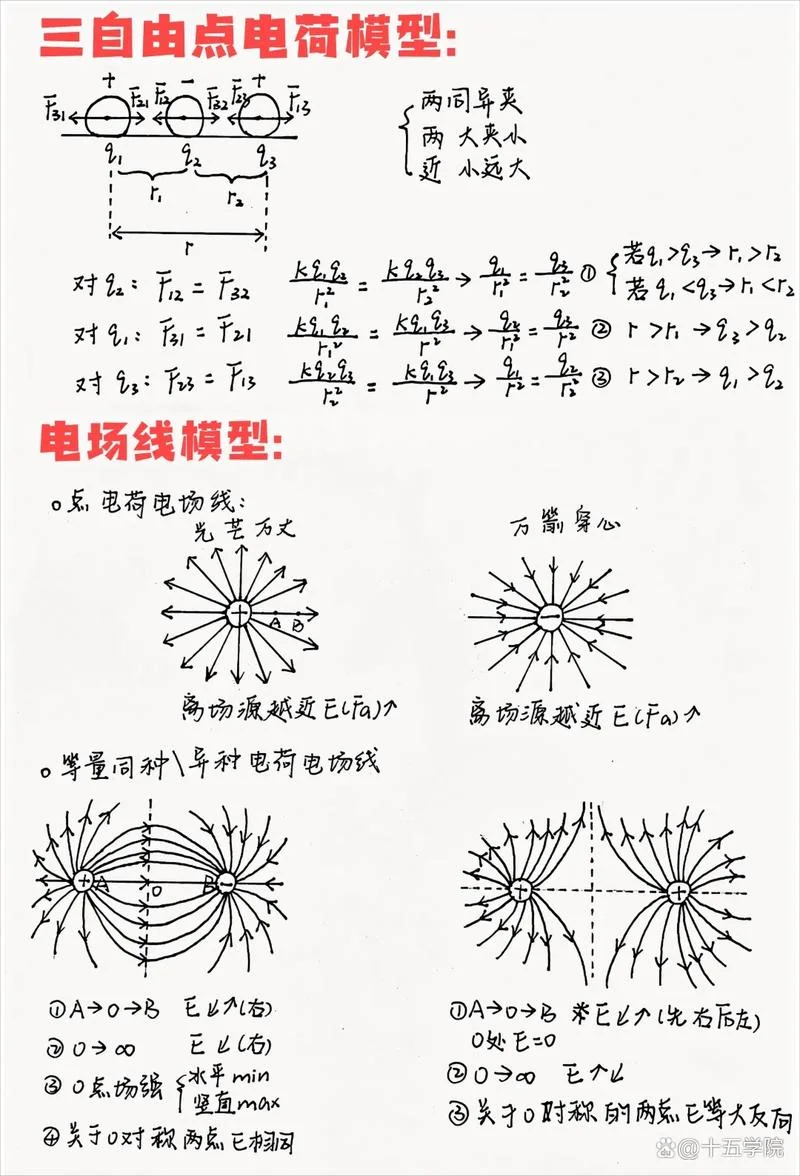 三自由点电荷模型:
+ - +
F₃₁ F₂₁ F₁₂ F₃₂ F₂₃ F₁₃
q₁ q₂ q₃
r₁ r₂
r
两同异夹
两大夹小
近小远大
对q₂: F₁₂ = F₃₂ kq₁q₂/r₁² = kq₂q₃/r₂² → q₁/r₁² = q₃/r₂² ① 若q₁>q₃→r₁>r₂
若q₁<q₃→r₁<r₂
对q₁: F₃₁ = F₂₁ kq₁q₂/r₁² = kq₁q₃/r² → q₂/r₁² = q₃/r² ② r>r₁→q₃>q₂
对q₃: F₂₃ = F₁₃ kq₂q₃/r₂² = kq₁q₃/r² → q₁/r² = q₂/r₂² ③ r>r₂→q₁>q₂
电场线模型:
点电荷电场线:
光芒万丈
万箭穿心
+ A B
-
离场源越近E(Fa)↑
离场源越近E(Fa)↑
等量同种\异种电荷电场线
+ A O B -
+ +
①A→O→B E↓↑(右)
②O→∞ E↓(右)
③O点场强 水平min
竖直max
④关于O对称两点E相同
①A→O→B E↓↑(先右后左)
O处E=0
②O→∞ E↑↓
③关于O对称的两点E等大反向
十五学院